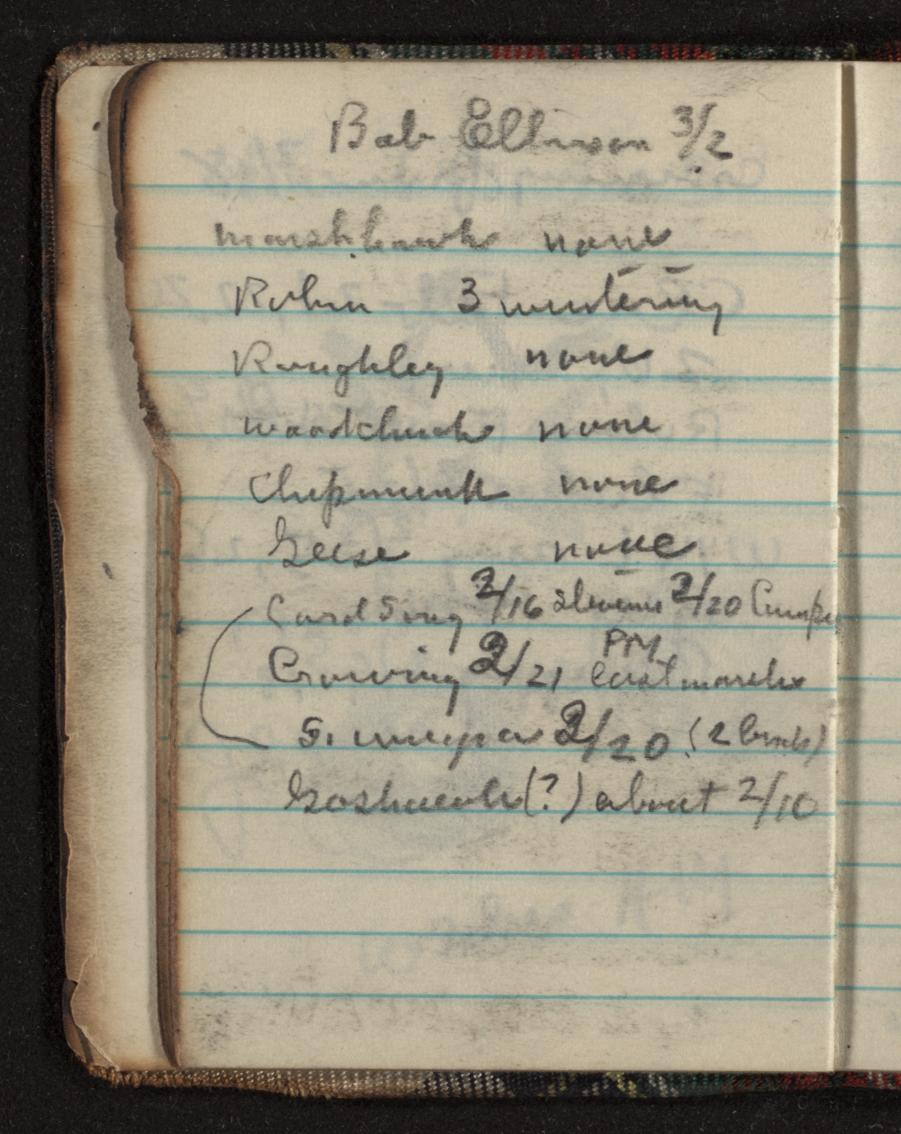 Bob Ellarson 3/2
Marsh hawk none
Robin 3 wintering
Roughleg none
Woodchuck none
Chipmunk none
Geese none
Card Song 2/16 Stevens 2/20
Crowing 2/21 PM East marsh
S. 2/20 (2 birds)
Goshawk (?) about 2/10